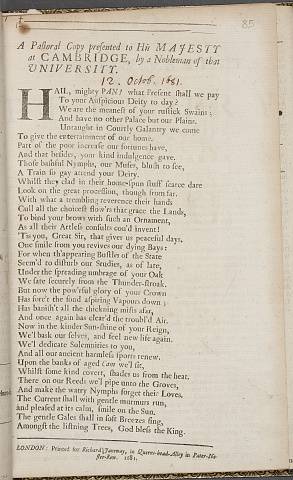 85
A Pastoral Copy presented to His MAJESTY
at CAMBRIDGE, by a Nobleman of that
UNIVERSITY.
12. Octob. 1681.
HAIL, mighty PAN! what Present shall we pay
To your Auspicious Deity to day?
We are the meanest of your rustick Swains;
And have no other Palace but our Plains.
Untaught in Courtly Galantry we come
To give the entertainment of our home.
Part of the poor increase our fortunes have,
And that besides, your kind indulgence gave.
Those bashful Nymphs, our Muses, blush to see,
A Train so gay attend your Deity.
Whilst they clad in their home-spun stuff scarce dare
Look on the great procession, though from far.
With what a trembling reverence their hands
Cull all the choicest flow'rs that grace the Lands,
To bind your brows with such an Ornament,
As all their Artless consults cou'd invent!
'Tis you, Great Sir, that gives us peaceful days,
One smile from you revives our dying Bays:
For when th'appearing Bustles of the State
Seem'd to disturb our Studies, as of late,
Under the spreading umbrage of your Oak
We sate securely from the Thunder-stroak.
But now the pow'rful glory of your Crown
Has forc't the fond aspiring Vapours down;
Has banish't all the thickning mists afar,
And once again has clear'd the troubl'd Air.
Now in the kinder Sun-shine of your Reign,
We'l bask our selves, and feel new life again.
We'l dedicate Solemnities to you,
And all our ancient harmless sports renew.
Upon the banks of aged Cam we'l sit,
Whilst some kind covert, shades us from the heat.
There on our Reeds we'l pipe unto the Groves,
And make the watry Nymphs forget their Loves.
The Current shall with gentle murmurs run,
and pleased at its calm, smile on the Sun.
The gentle Gales shall in soft Breezes sing,
Amongst the list'ning Trees, God bless the King.
LONDON: Printed for Richard Janeway, in Queens-head-Alley in Pater-No-
ster-Row. 1681.